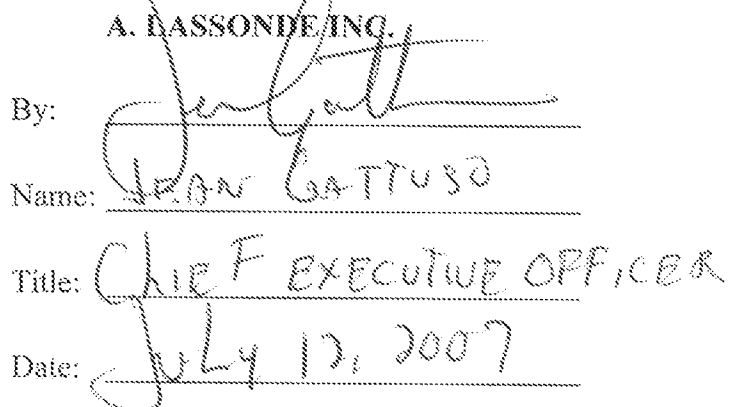 A. LASSONDE INC.
By: Jean Gatt
Name: JEAN GATTUSO
Title: ChIEF EXECUTIVE OFFICER
Date: July 12, 2007